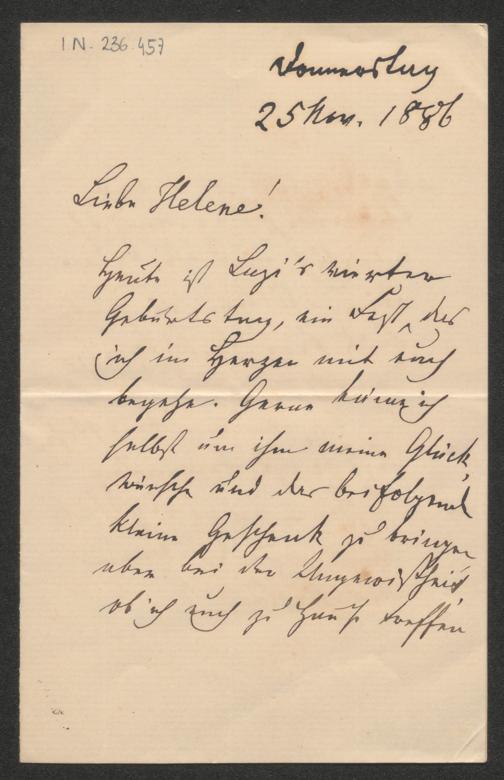 I.N. 236.457
Donnerstag
25 Nov. 1886
Liebe Helene!
Heute ist vierter
Geburtstag, ein Fest, das
ich im Herzen mit euch
begehe. Gerne käme ich
selbst um ihm meine Glück
wünsche und das beifolgend
kleine Geschenk zu bringen
aber bei der Ungewißheit
ob ich euch zu Hause treffen